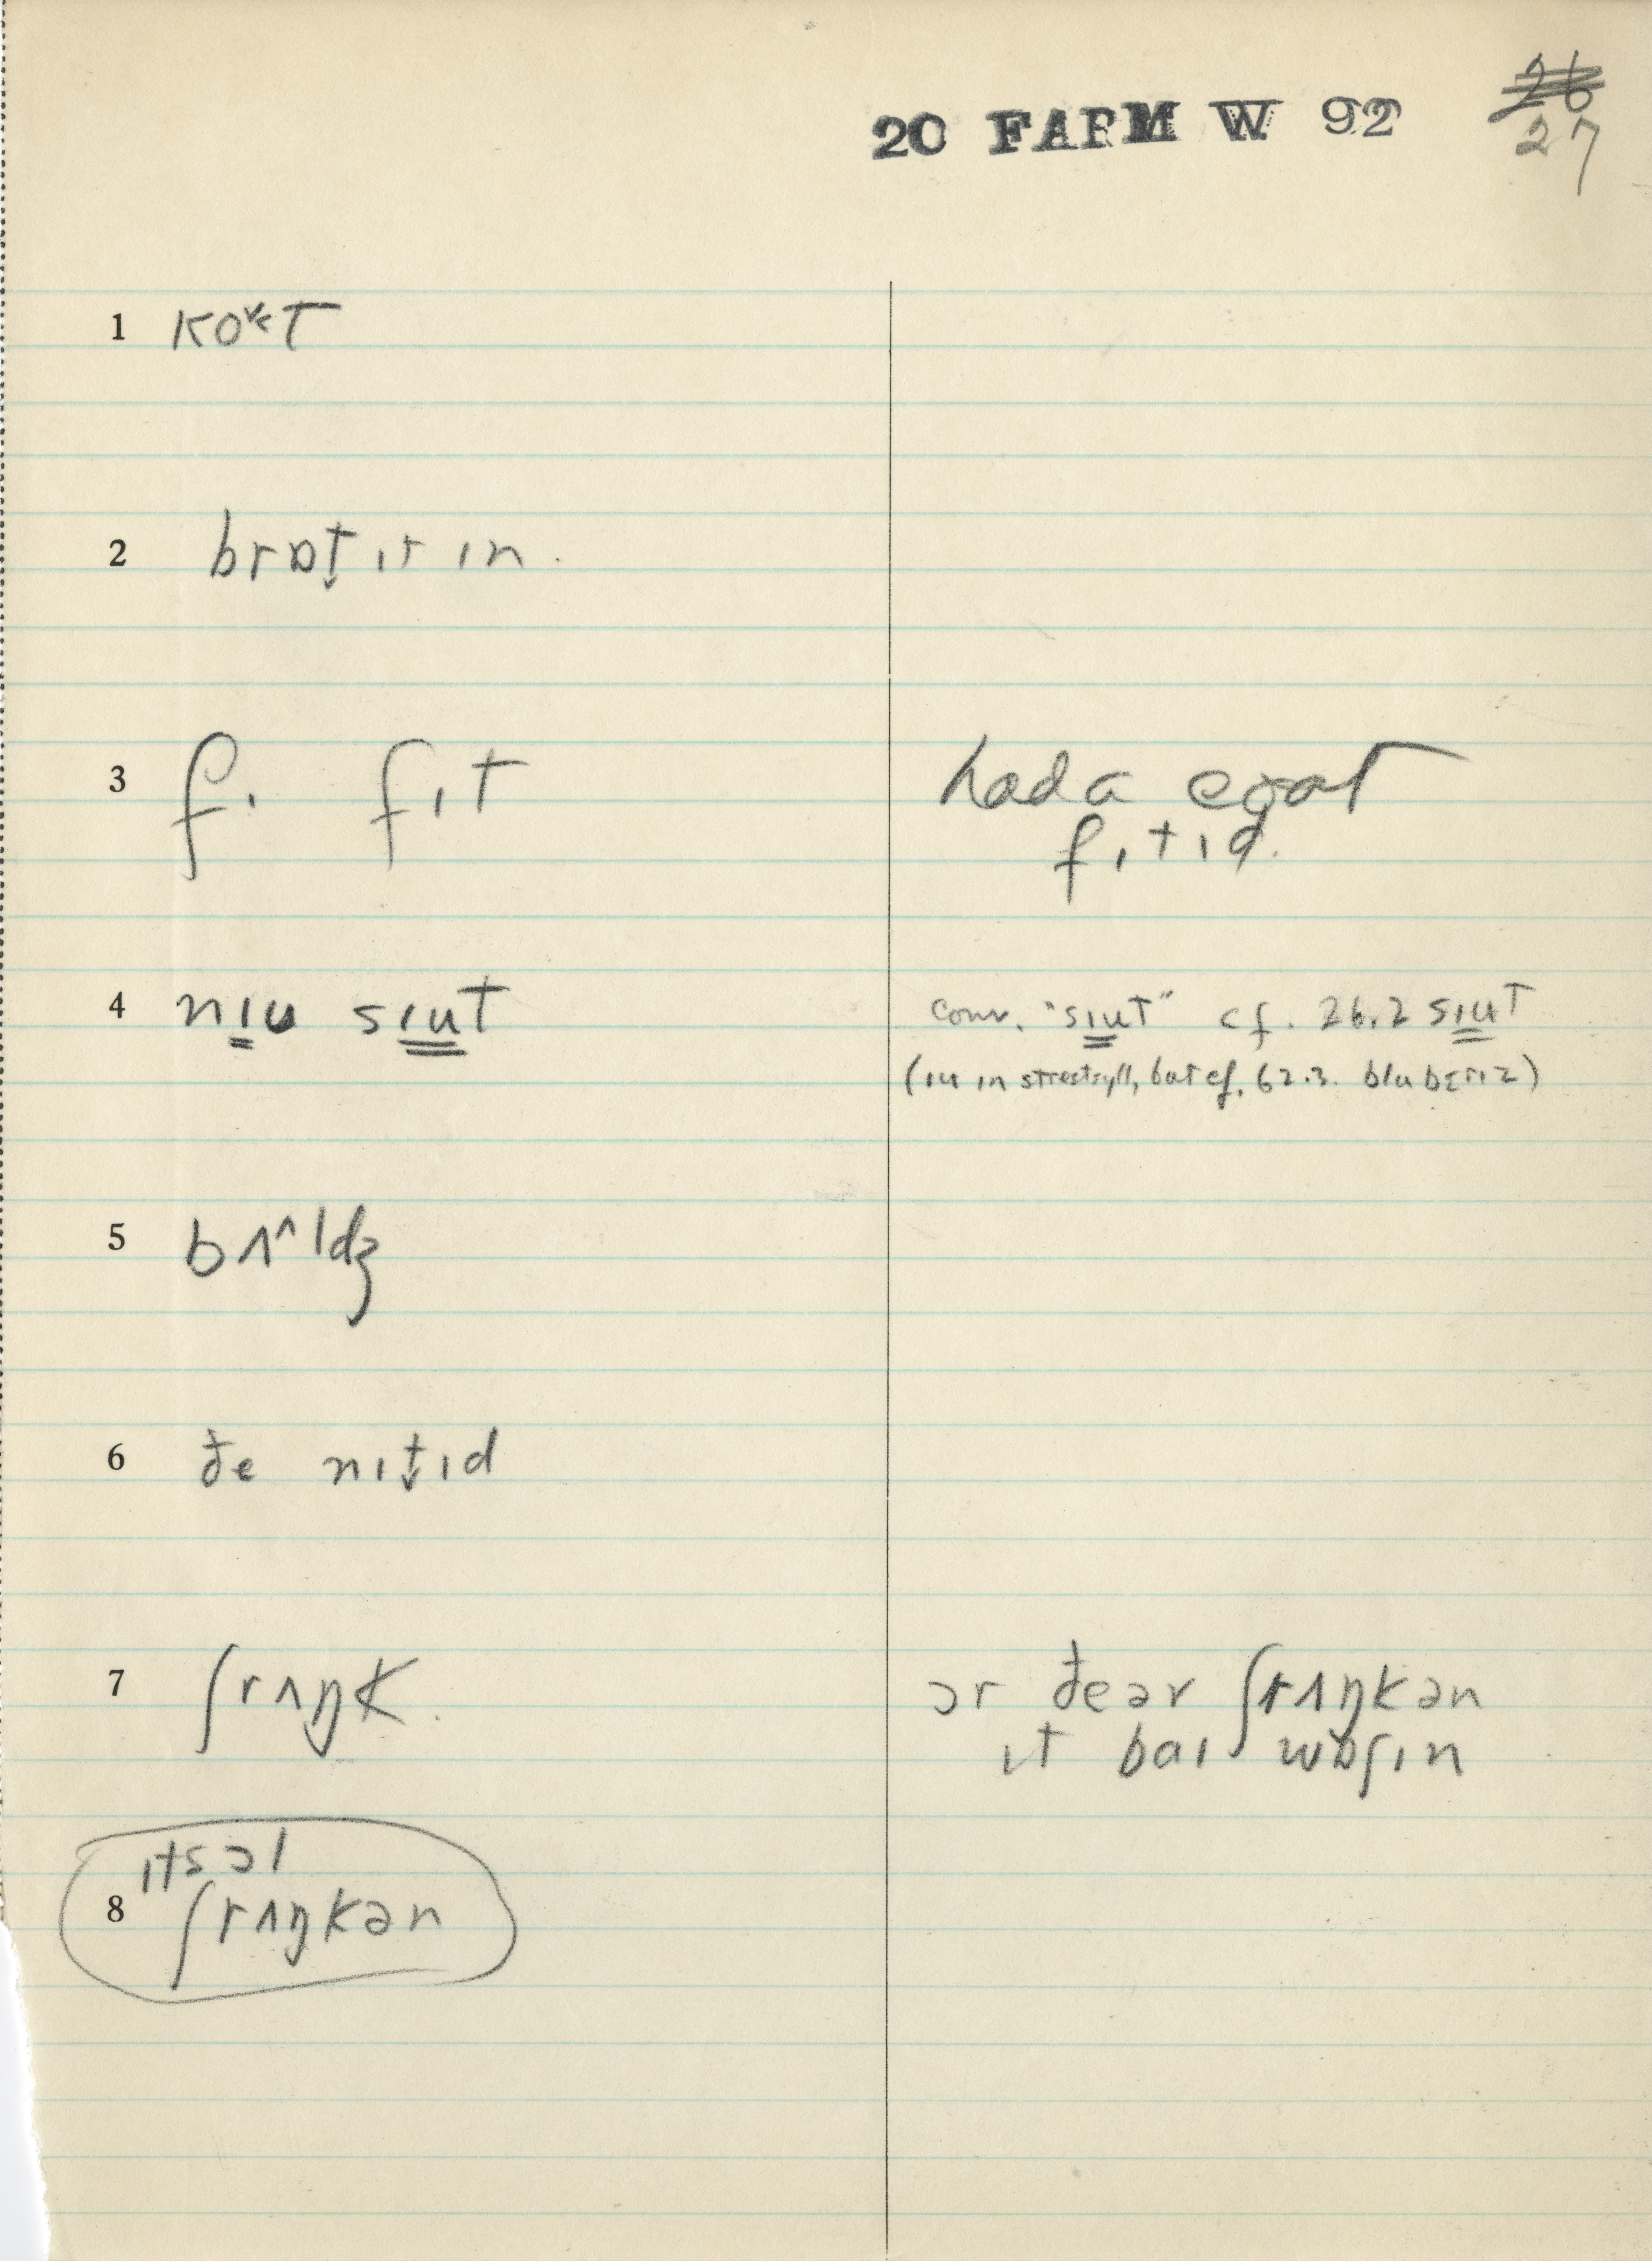 20 FARM W 92
26
27
1 ko^vt
2 brɒt̬ ɪt ɪn.
3 f. fɪt
had a coat
fɪtɪd.
4 nɪu sɪut
conv. "sɪut" cf. 26.2 sɪut
(ɪu in strest syll, but cf. 62.3. blubɛrɪz)
5 bʌ^ldʒ
6 ðe nɪt̬ɪd
7 ʃrʌŋk.
ɔr ðeər ʃrʌŋkən
ɪt baɪ wɒʃɪn
ɪts ɔl
8 ʃrʌŋkən